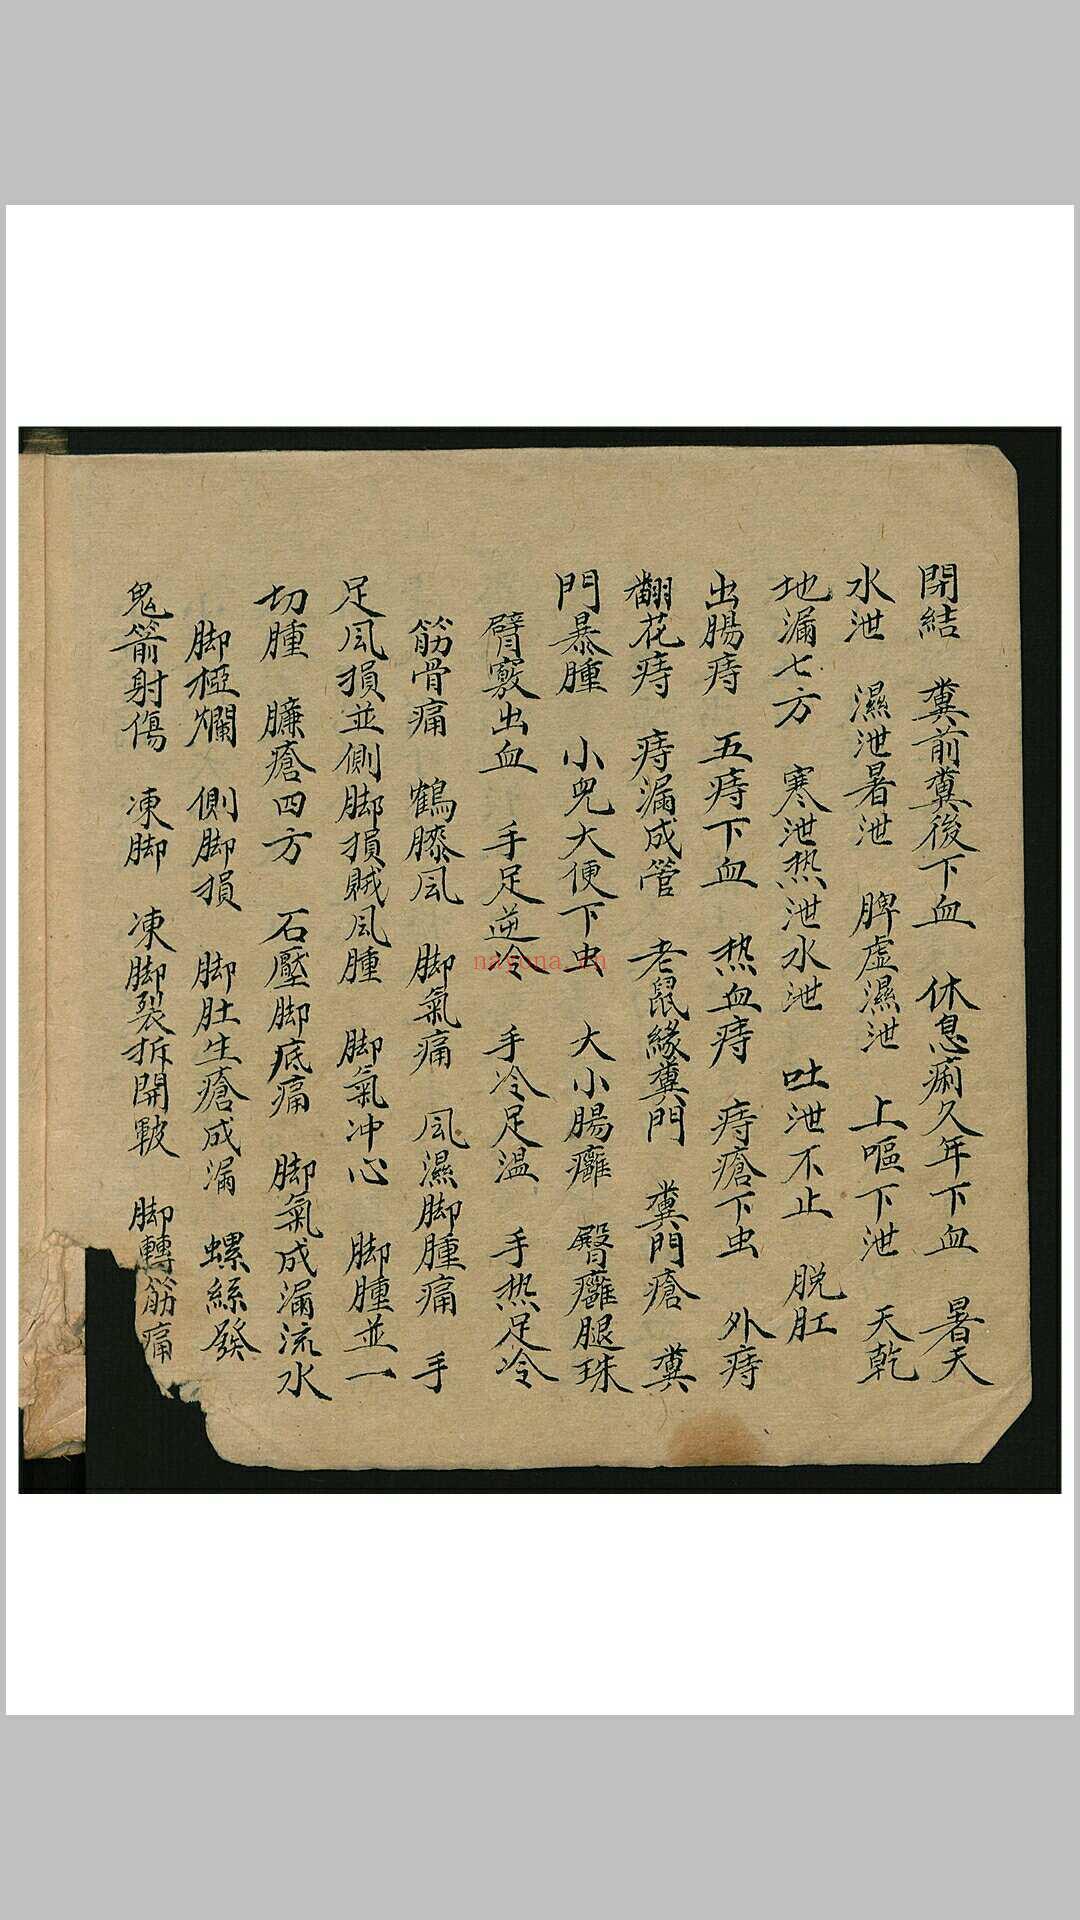 閉結　糞前糞後下血　休息痢久年下血　暑天
水泄　濕泄暑泄　脾虚濕泄　上嘔下泄　天乾
地漏七方　寒泄热泄水泄　吐泄不止　脱肛
出腸痔　五痔下血　热血痔　痔瘡下虫　外痔
翻花痔　痔漏成管　老鼠緣糞門　糞門瘡　糞
門暴腫　小兒大便下虫　大小腸癰　臀癰腿珠
臂竅出血　手足逆冷　手冷足温　手热足冷
筋骨痛　鶴膝風　脚氣痛　風濕脚腫痛　手
足風損並側脚損賊風腫　脚氣冲心　脚腫並一
切腫　臁瘡四方　石壓脚底痛　脚氣成漏流水
脚椏爛　側脚損　脚肚生瘡成漏　螺絲發
鬼箭射傷　凍脚　凍脚裂拆開皸　脚轉筋痛
nayona.cn